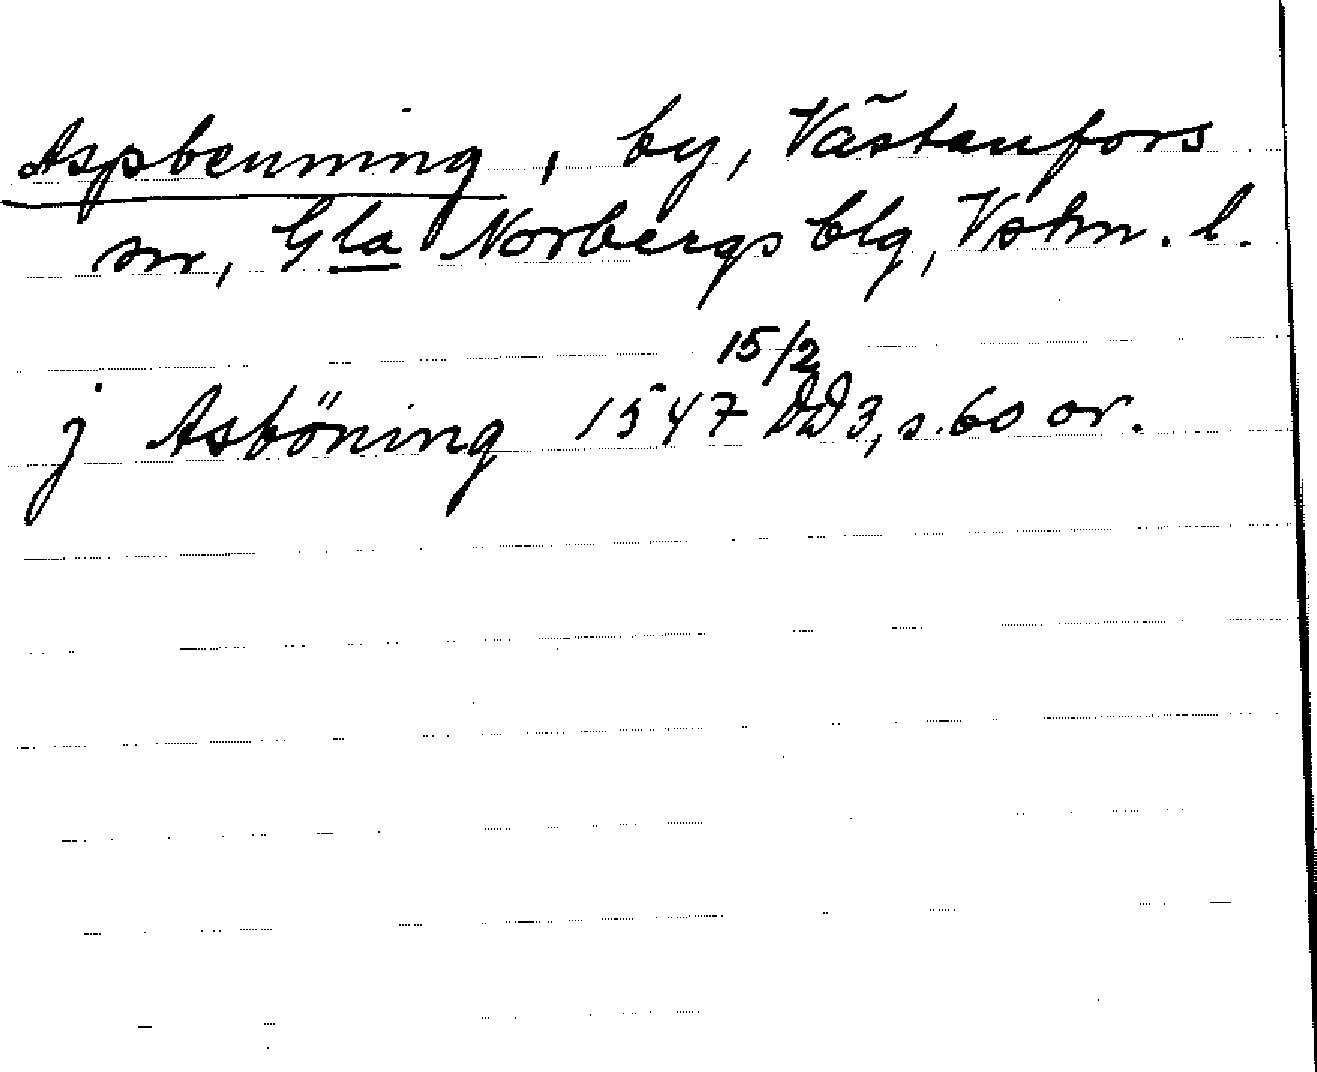 Aspbenning, by, Västanfors
sn, Gla Norbergs blg, Vstm. l.
j Asböning 1547 15/2 DD3, s. 60 or.